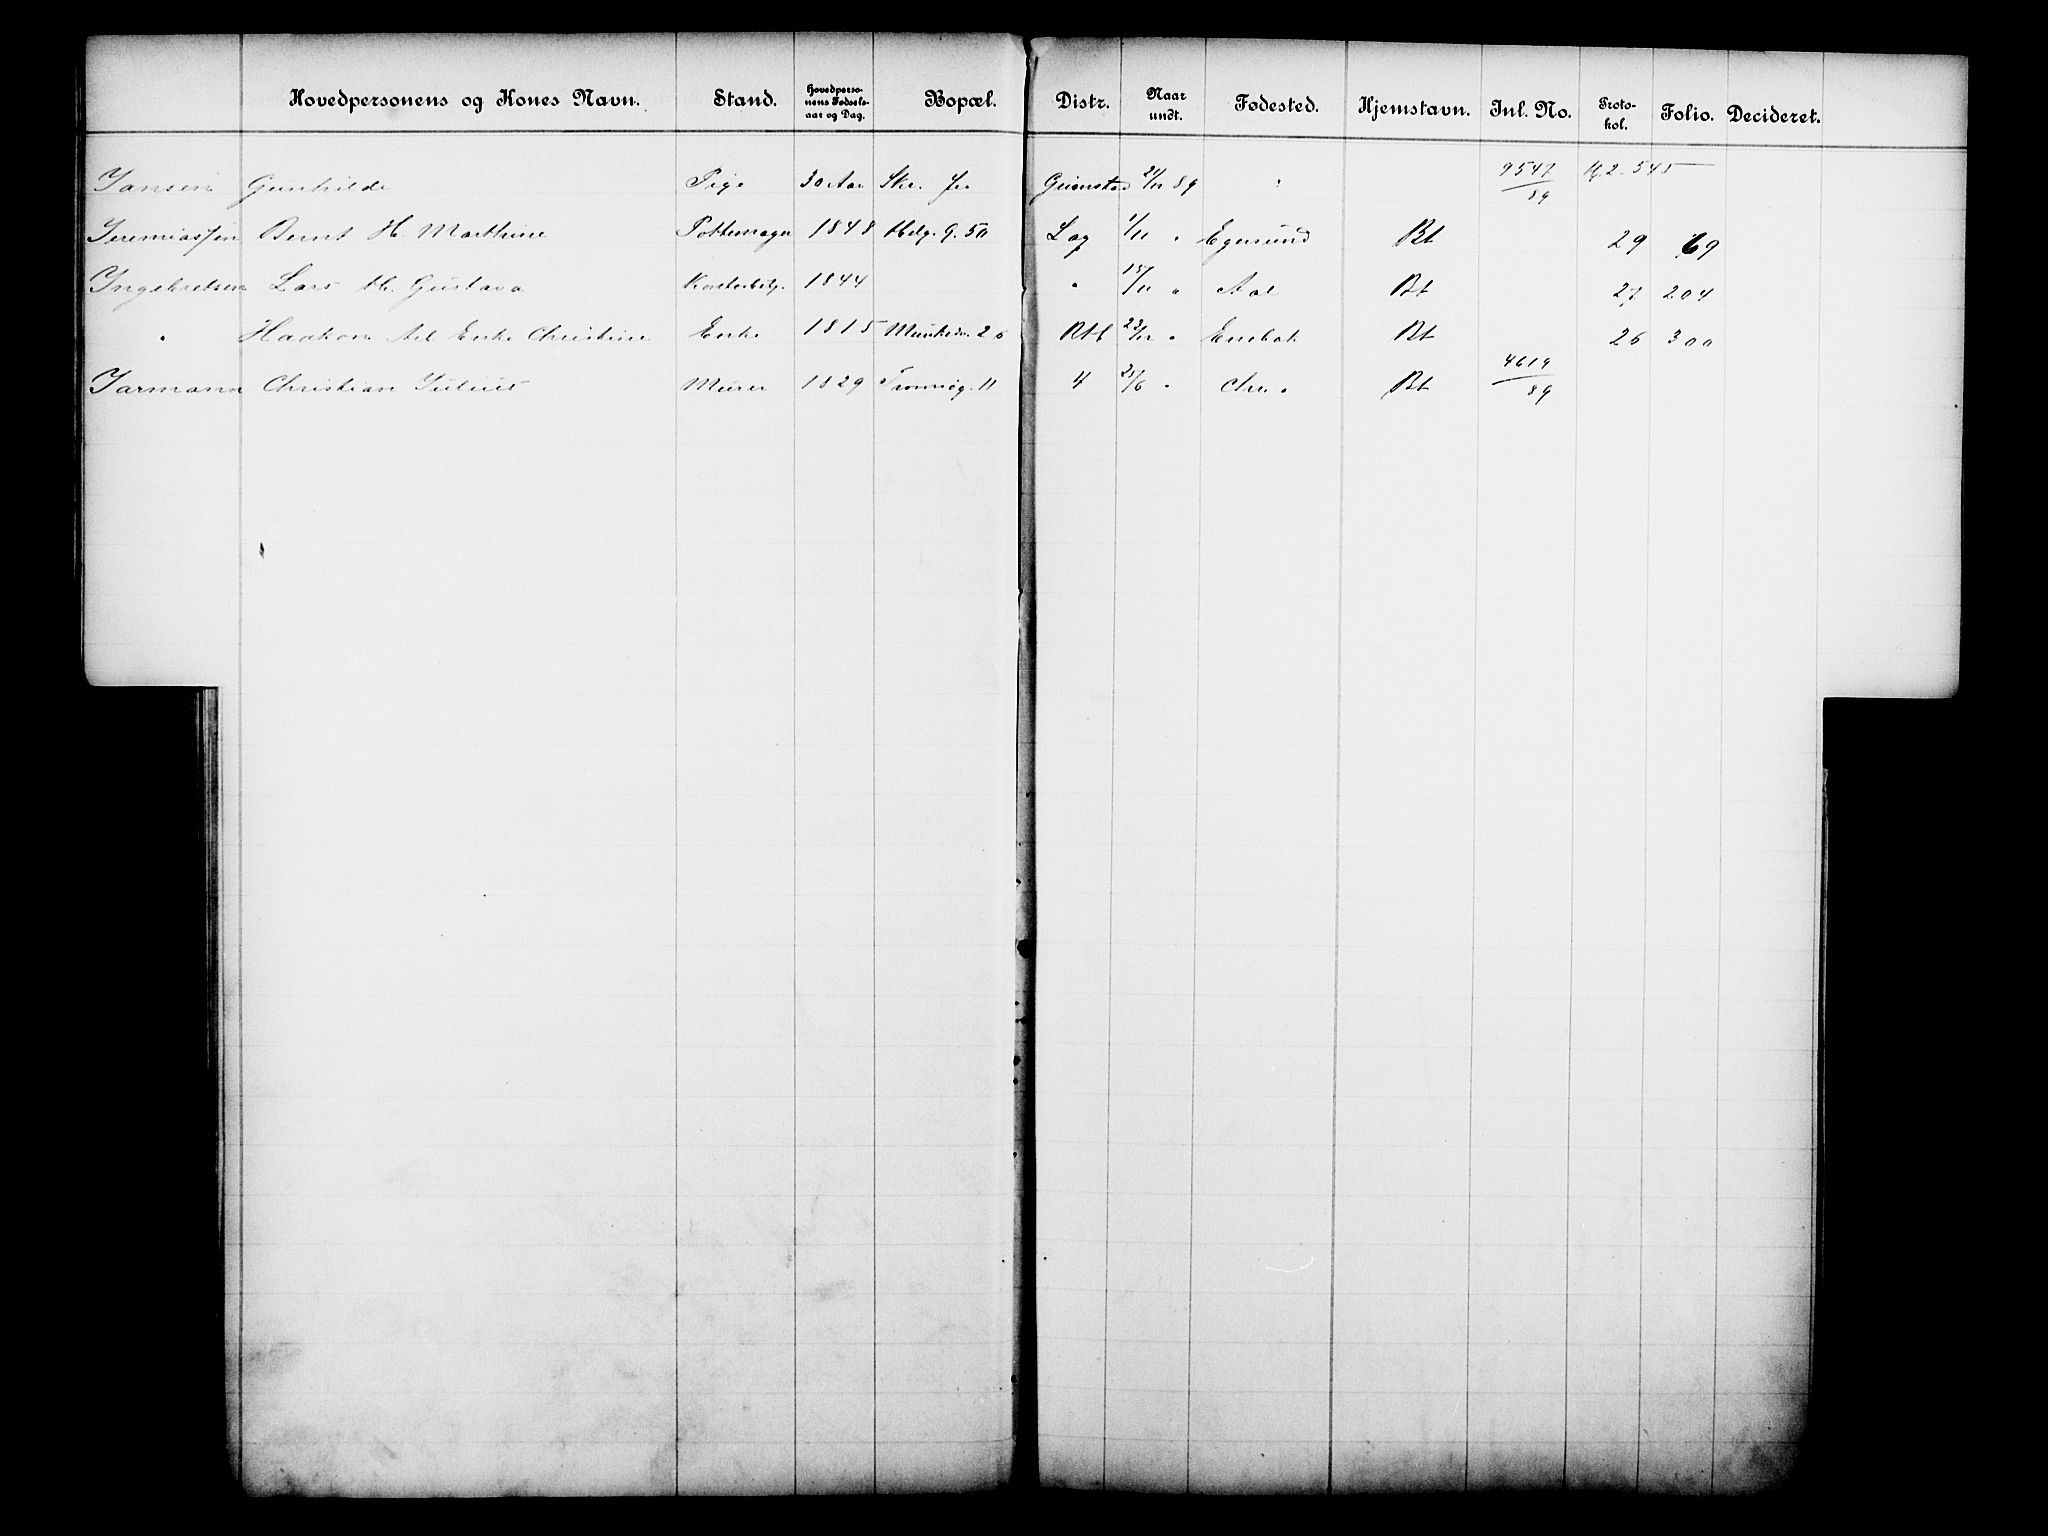 Hovedpersonens og Kones Navn. Stand. Hovedpersonens Fødselsaar og Dag. Bopæl. Distr. Naar undt. Fødested. Hjemstavn. Inl. No. Protokol. Folio. Decideret.
Jansen Gunhilde Pige 30 Aar Skr. fra Grimstad 21/12 89 " 9547/89 2. 545
Jeremiassen Bernt H. Marthine Pottemager 1848 Helg. g. 50 Lag 1/11 " Egersund Bt 29 69
Ingebretsen Lars H. Gustava 1844 " 15/11 " Aal Bt 27 204
" Haakon Enke Christine Enke 1815 Munkedv. 26 Rtl 23/12 " Enebak Bt 26 300
Jarmann Christian Julius Murer 1829 Tromsøg. 11 4 25/6 " Chr. a Bt 4619/89